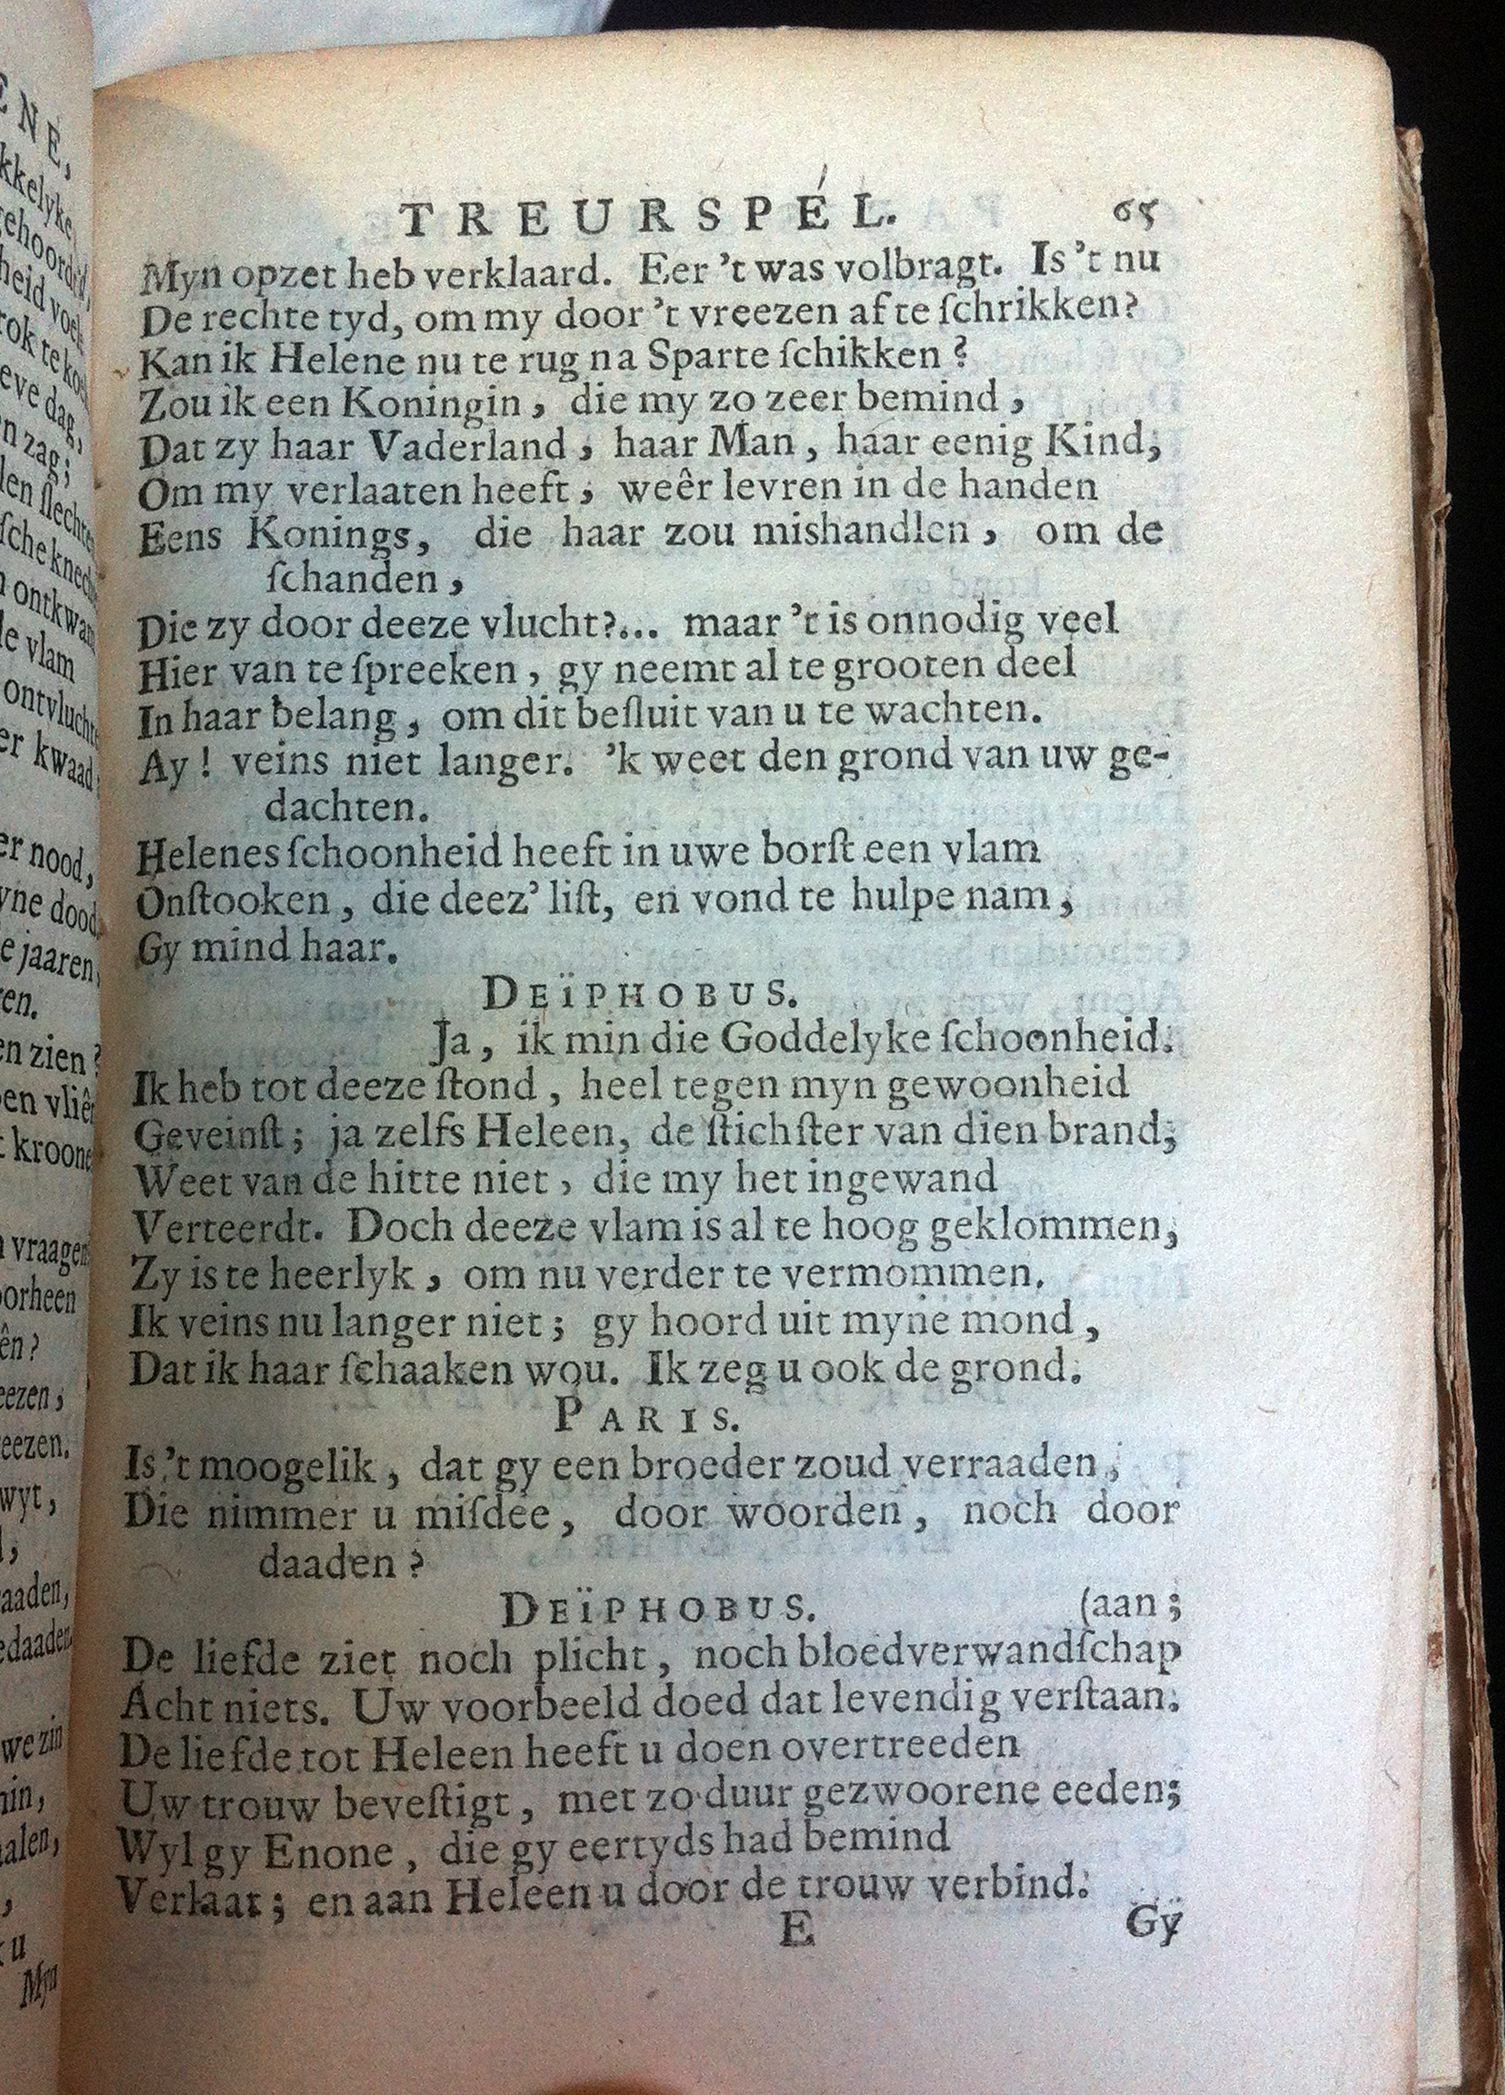 TREURSPÉL. 65
Myn opzet heb verklaard. Eer 't was volbragt. Is 't nu
De rechte tyd, om my door 't vreezen af te ſchrikken?
Kan ik Helene nu te rug na Sparte ſchikken?
Zou ik een Koningin, die my zo zeer bemind,
Dat zy haar Vaderland, haar Man, haar eenig Kind,
Om my verlaaten heeft, weêr levren in de handen
Eens Konings, die haar zou mishandlen, om de
ſchanden,
Die zy door deeze vlucht?... maar 't is onnodig veel
Hier van te ſpreeken, gy neemt al te grooten deel
In haar belang, om dit beſluit van u te wachten.
Ay! veins niet langer. 'k weet den grond van uw ge-
dachten.
Helenes ſchoonheid heeft in uwe borſt een vlam
Onſtooken, die deez' liſt, en vond te hulpe nam,
Gy mind haar.
DEÏPHOBUS.
Ja, ik min die Goddelyke ſchoonheid.
Ik heb tot deeze ſtond, heel tegen myn gewoonheid
Geveinſt; ja zelfs Heleen, de ſtichſter van dien brand,
Weet van de hitte niet, die my het ingewand
Verteerdt. Doch deeze vlam is al te hoog geklommen,
Zy is te heerlyk, om nu verder te vermommen.
Ik veins nu langer niet; gy hoord uit myne mond,
Dat ik haar ſchaaken wou. Ik zeg u ook de grond.
PARIS.
Is 't moogelik, dat gy een broeder zoud verraaden,
Die nimmer u miſdee, door woorden, noch door
daaden?
DEÏPHOBUS. (aan;
De liefde ziet noch plicht, noch bloedverwandſchap
Acht niets. Uw voorbeeld doed dat levendig verſtaan.
De liefde tot Heleen heeft u doen overtreeden
Uw trouw beveſtigt, met zo duur gezwoorene eeden;
Wyl gy Enone, die gy eertyds had bemind
Verlaat; en aan Heleen u door de trouw verbind.
E Gy